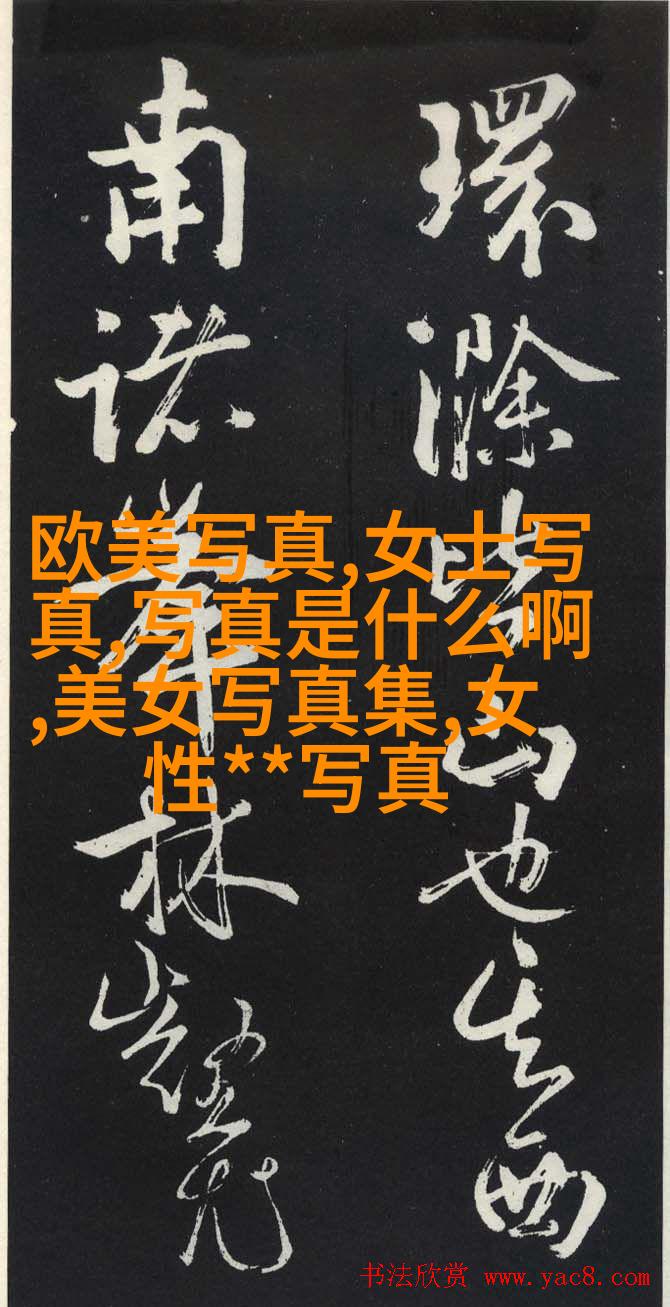 環滁皆山也其西
南諸峯林壑尤
欧美写真,女士写
真,写真是什么啊
,美女写真集,女
性**写真
书法欣赏 www.yac8.com